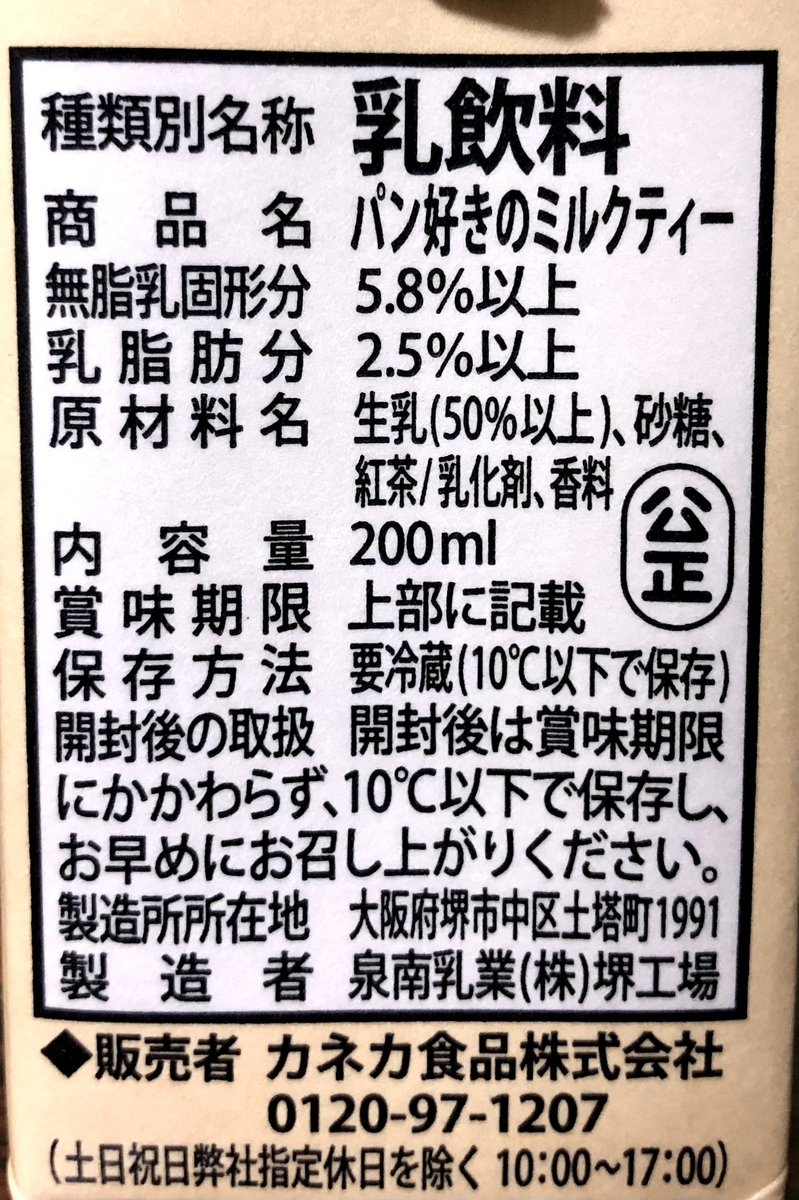 種類別名称 乳飲料
商品名 パン好きのミルクティー
無脂乳固形分 5.8%以上
乳脂肪分 2.5%以上
原材料名 生乳(50%以上)、砂糖、
紅茶/乳化剤、香料
公正
内容量 200ml
賞味期限 上部に記載
保存方法 要冷蔵(10℃以下で保存)
開封後の取扱 開封後は賞味期限
にかかわらず、10℃以下で保存し、
お早めにお召し上がりください。
製造所所在地 大阪府堺市中区土塔町1991
製造者 泉南乳業(株)堺工場
◆販売者 カネカ食品株式会社
0120-97-1207
(土日祝日弊社指定休日を除く 10:00~17:00)